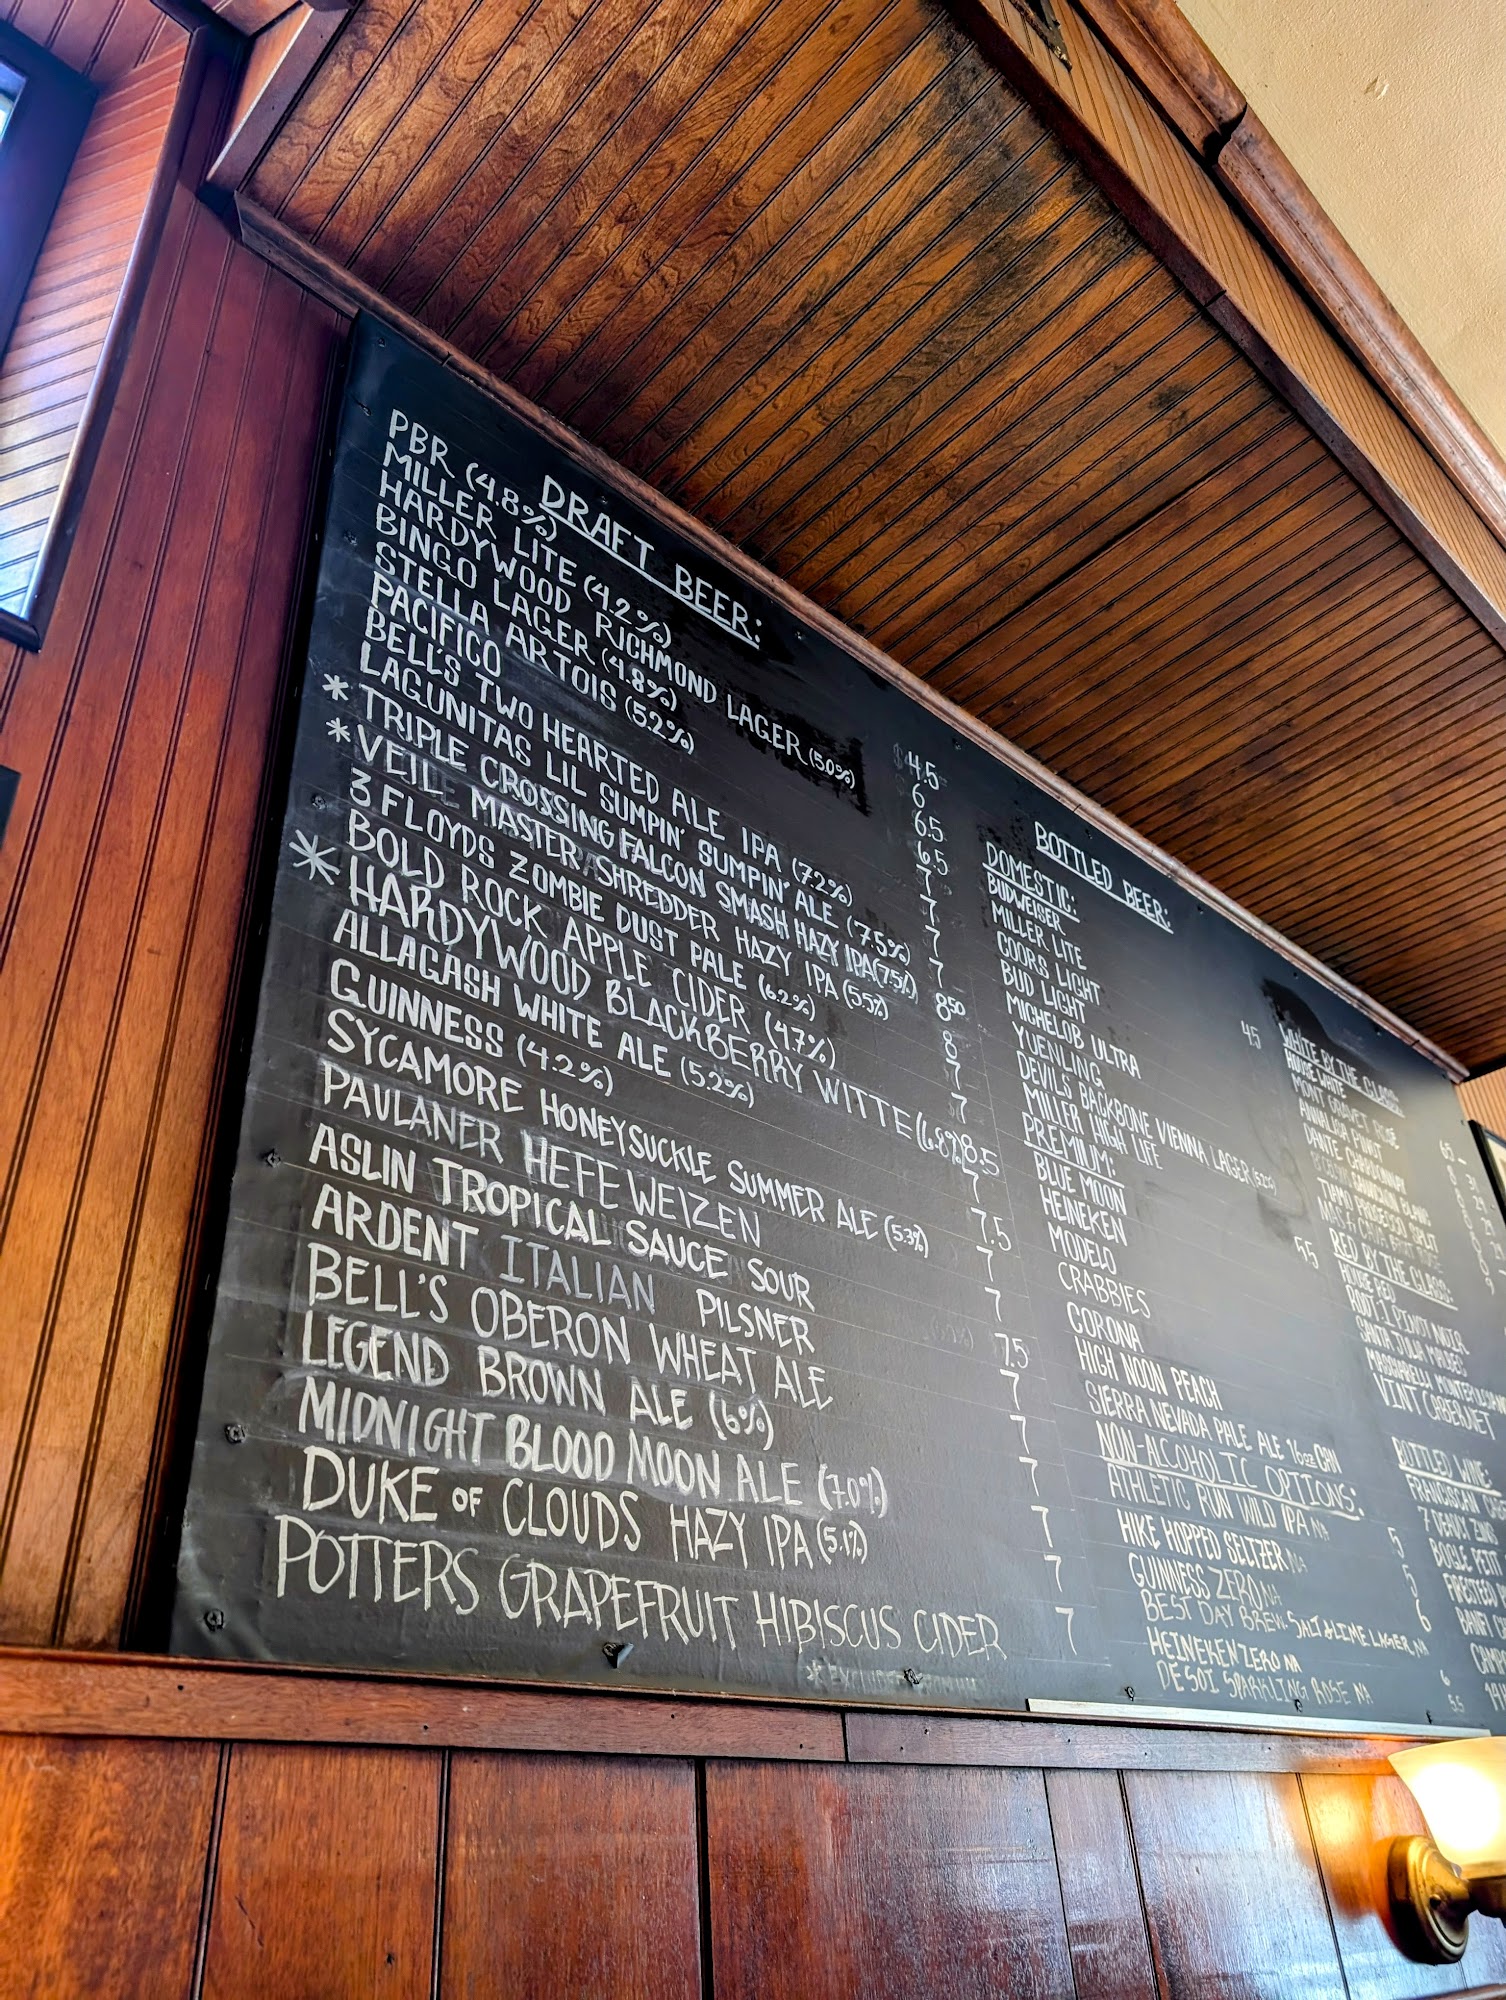 DRAFT BEER:
PBR (4.8%)
MILLER LITE (4.2%)
HARDYWOOD RICHMOND LAGER (5.0%)
BINGO LAGER (4.8%)
STELLA ARTOIS (5.2%)
PACIFICO
BELL'S TWO HEARTED ALE IPA (7.2%)
LAGUNITAS LIL SUMPIN' SUMPIN' ALE (7.5%)
* TRIPLE CROSSING FALCON SMASH HAZY IPA (7.5%)
* VEIL MASTER SHREDDER HAZY IPA (5.5%)
3 FLOYDS ZOMBIE DUST PALE (6.2%)
BOLD ROCK APPLE CIDER (4.7%)
* HARDYWOOD BLACKBERRY WITTE (6.8%)
ALLAGASH WHITE ALE (5.2%)
GUINNESS (4.2%)
SYCAMORE HONEYSUCKLE SUMMER ALE (5.3%)
PAULANER HEFEWEIZEN
ASLIN TROPICAL SAUCE SOUR
ARDENT ITALIAN PILSNER
BELL'S OBERON WHEAT ALE
LEGEND BROWN ALE (6%)
MIDNIGHT BLOOD MOON ALE (7.0%)
DUKE OF CLOUDS HAZY IPA (5.1%)
POTTERS GRAPEFRUIT HIBISCUS CIDER
4.5
6
6.5
6.5
7
7
7
7
8.50
8
7
7
8.5
7
7.5
7
7
7.5
7
7
7
7
7
7
BOTTLED BEER:
DOMESTIC: 4.5
BUDWEISER
MILLER LITE
COORS LIGHT
BUD LIGHT
MICHELOB ULTRA
YUENLING
DEVILS BACKBONE VIENNA LAGER (5.2%)
MILLER HIGH LIFE
PREMIUM: 5.5
BLUE MOON
HEINEKEN
MODELO
CRABBIES
CORONA
HIGH NOON PEACH
SIERRA NEVADA PALE ALE 16oz CAN
NON-ALCOHOLIC OPTIONS:
ATHLETIC RUN WILD IPA NA 5
HIKE HOPPED SELTZER NA 5
GUINNESS ZERO NA 6
BEST DAY BREW SALT & LIME LAGER NA
HEINEKEN ZERO NA 6
DE SOI SPARKLING ROSE NA 5.5
WHITE BY THE GLASS:
HOUSE WHITE
MONT GRAVET ROSE
ANNALISA PINOT
DANTE CHARDONNAY
TIAMO PROSECCO SPLIT
RED BY THE GLASS:
HOUSE RED
ROOT 1 PINOT NOIR
SANTA JULIA MALBEC
VINT CABERNET
BOTTLED WINE
FRANCISCAN